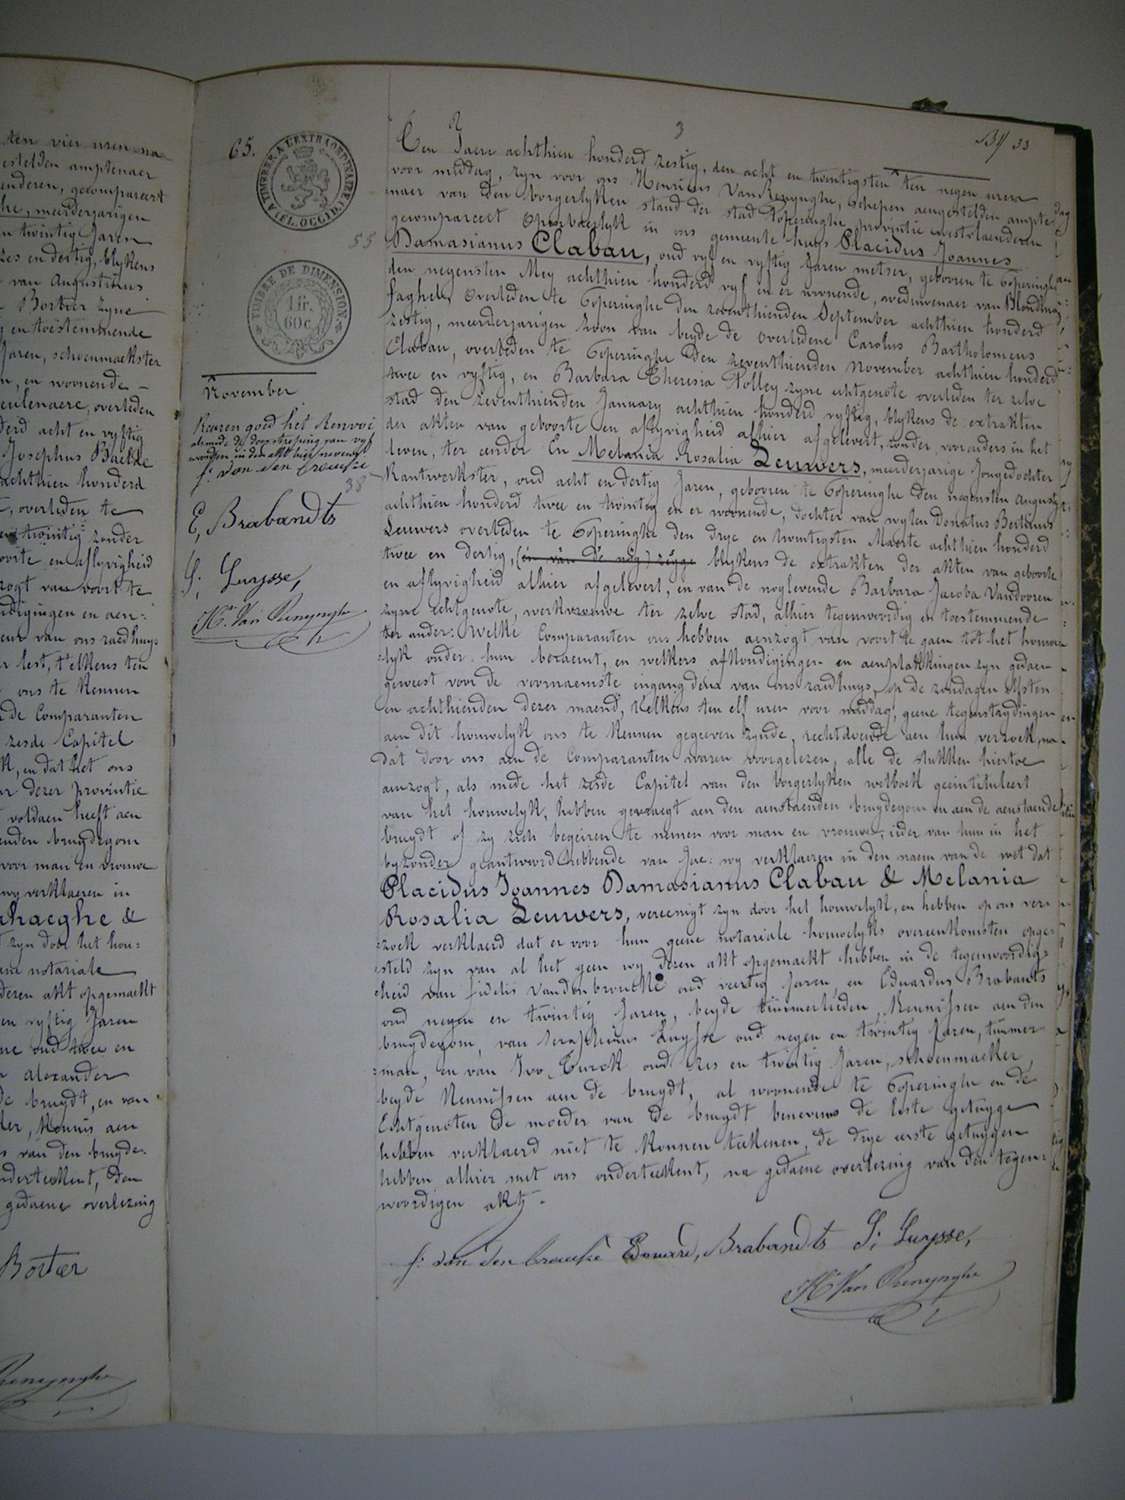 ten vier uren na
estelden amptenaer
enderen, gecompareert
he, meerderjarigen
n twintig Jaren
zes en dertig, blykens
van Augustinus
Bortier zyne
en toestemmende
Jaren, schoenmaekster
n, en woonende
eulenaere, overleden
derd acht en vyftig
Josephus Baelde
achthien honderd
, overleden te
twintig zonder
oorte en aflyvigheid
zogt van voort te
digingen en aen-
van ons raedhuys
lest, t'elkens ten
ons te kennen
de Comparanten
zesde Capitel
k, en dat het ons
dezer provintie
voldaen heeft aen
enden bruydegom
voor man en vrouwe
wy verklaeren in
haeghe &
zyn door het hou-
ne notariale
deren akt opgemaekt
en vyftig Jaren
ne oud twee en
alexander
de bruydt, en van
der, kennis aen
van den bruyde-
nderteekent, den
gedaene overlezing
Bortier
Renynghe
65.
3
139 33
TIMBRE A L'EXTRAORDINAIRE
FL. OCCID.
55
TIMBRE DE DIMENSION
1 fr.
60 c.
November
Keuren goed het Renvoi
alsmede de doorstreping van vyf
woorden in den akt hier nevens
f: van den broucke
38
E, Brabandts
S; Luysse,
Hri Van Renynghe
Een Jaere achthien honderd zestig, den acht en twintigsten ten negen uren
voor middag, zyn voor ons Henricus Van Renynghe, Schepen aengestelden ampte-
naer van den borgerlyken stand der stad Poperinghe, provintie westvlaenderen
gecompareert Openbaerlyk in ons gemeente huys Placidus Joannes
Damasianus Clabau, oud vyf en vyftig Jaren metser, geboren te Poperinghe
den negensten Mey achthien honderd vyf en er woonende, weduwenaer van Blondina
faghel, Overleden te Poperinghe den zeventhienden September achthien honderd
zestig, meerderjarigen zoon van beyde de overledene Carolus Bartholomeus
Clabau, overleden te Poperinghe den zeventhienden November achthien honderd
twee en vyftig, en Barbara Theresia Polley zyne echtgenote overleden ter zelve
stad den zeventhienden January achthien honderd vyftig, blykens de extrakten
der akten van geboorte en aflyvigheid alhier afgelevert, zonder voorouders in het
leven, ter eender En Melania Rosalia Leuwers, meerderjarige Jongedochter
Kantwerkster, oud acht en dertig Jaren, geboren te Poperinghe den negensten Augusty
achthien honderd twee en twintig en er woonende, dochter van wylen Donatus Bertinus
Leuwers overleden te Poperinghe den drye en twintigsten Maerte achthien honderd
twee en dertig, (en van de nog) zyge blykens de extrakten der akten van geboorte
en aflyvigheid alhier afgelevert, en van de noglevende Barbara Jacoba Vandooren
zyne echtgenote, werkvrouwe ter zelve stad, alhier tegenwoordig en toestemmende
ter ander: Welke Comparanten ons hebben aenzogt van voort te gaen tot het houwe-
lyk onder hun beraemt, en welkers afkondigingen en aenplakkingen zyn gedaen
geweest voor de voornaemste ingang deur van ons raedhuys, op de zondagen elfsten
en achthienden dezer maend, t'elkens ten elf uren voor middag, geene tegenstrydingen
aen dit houwelyk ons te kennen gegeven zynde, rechtdoende aen hun verzoek, na
dat door ons aen de Comparanten waren voorgelezen, alle de stukken hiertoe
aenzogt, als mede het zesde Capitel van den borgerlyken wetboek geintituleert
van het houwelyk, hebben gevraegt aen den aenstaenden bruydegom en aen de aenstaende
bruydt of zy zich begeiren te nemen voor man en vrouwe; ieder van hun in het
byzonder geantwoord hebbende van Jae: wy verklaeren in den naem van de wet dat
Placidus Joannes Damasianus Clabau & Melania
Rosalia Leuwers, vereenigt zyn door het houwelyk, en hebben op ons ver-
zoek verklaerd dat er voor hun geene notariale houwelyks overeenkomsten opge-
steld zyn van al het geen wy deren akt opgemaekt hebben in de tegenwoordig-
heid van fidelis Vandenbroucke oud veertig Jaren, en Eduardus Brabants
oud negen en twintig Jaren, beyde timmerlieden, Kennissen aen den
bruydegom, van Seraphinus Luysse oud negen en twintig Jaren, timmer-
man, en van Ivo Turck oud zes en twintig Jaren, schoenmaeker,
beyde Kennissen aen de bruydt, al woonende te Poperinghe en de
Echtgenoten de moeder van de bruydt benevens de leste getuyge
hebben verklaerd niet te konnen teekenen, de drye eerste getuygen
hebben alhier met ons onderteekent, na gedaene overlezing van den tegen-
woordigen akt.
f: van den broucke Edouard, Brabandts S; Luysse,
Hri Van Renynghe